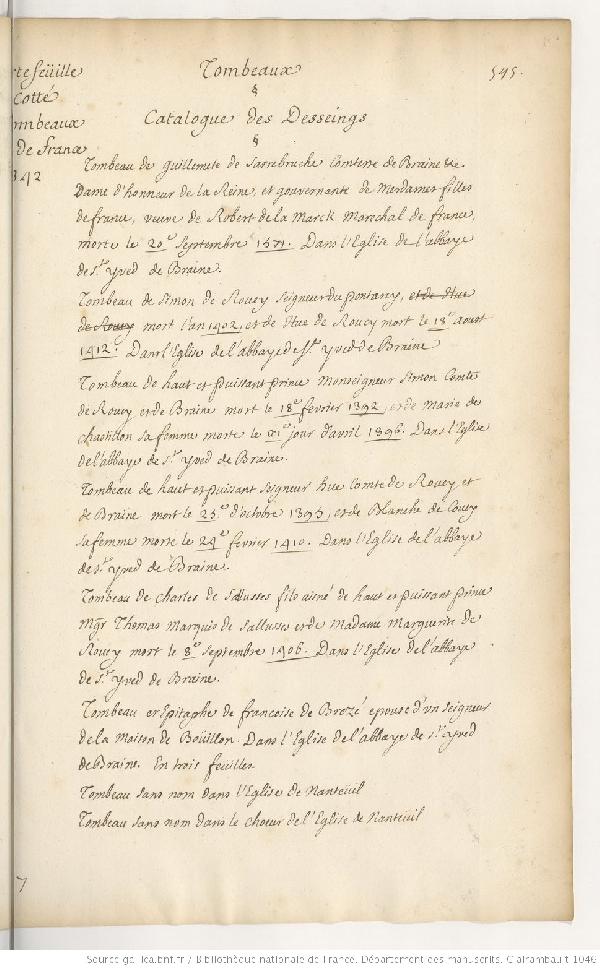 rtefeüille
Cotté
ombeaux
de France
342
Tombeaux
545.
§
Catalogue des Desseings
§
Tombeau de guillemete de Sarrebruche Comtesse de Braine &c.
Dame d'honneur de la Reine, et gouvernante de Mesdames filles
de france, veuve de Robert de la Marck Mareschal de france,
morte le 20.e Septembre 1571. Dans l'Eglise de l'abbaye
de S.t yved de Braine.
Tombeau de Simon de Roucy Seigneur du pontarcy, et de Hue
de Roucy mort l'an 1402, et de Hue de Roucy mort le 18.e Aoust
1412. Dans l'Eglise de l'abbaye de S.t yved de Braine
Tombeau de haut et puissant prince Monseigneur Simon Comte
de Roucy et de Braine mort le 18.e fevrier 1392, et de Marie de
chastillon sa femme morte le jour d'avril 1396. Dans l'Eglise
de l'abbaye de S.t yved de Braine.
Tombeau de haut et puissant Seigneur hue Comte de Roucy et
de Braine mort le 25.e d'octobre 1395, et de Blanche de Coucy
sa femme morte le 24.e fevrier 1410. Dans l'Eglise de l'abbaye
de S.t yved de Braine.
Tombeau de charles de Sallusses fils aisné de haut et puissant prince
Mgr Thomas Marquis de Sallusses et de Madame Marguerite de
Roucy mort le 8.e Septembre 1406. Dans l'Eglise de l'abbaye
de S.t yved de Braine.
Tombeau et Epitaphe de francoise de Brezé epouse d'un Seigneur
de la Maison de Boüillon. Dans l'Eglise de l'abbaye de S.t yved
de Braine. En trois feuilles
Tombeau sans nom dans l'Eglise de Nanteuil
Tombeau sans nom dans le choeur de l'Eglise de Nanteuil
Source gallica.bnf.fr / Bibliothèque nationale de France. Département des manuscrits. Clairambault 1046